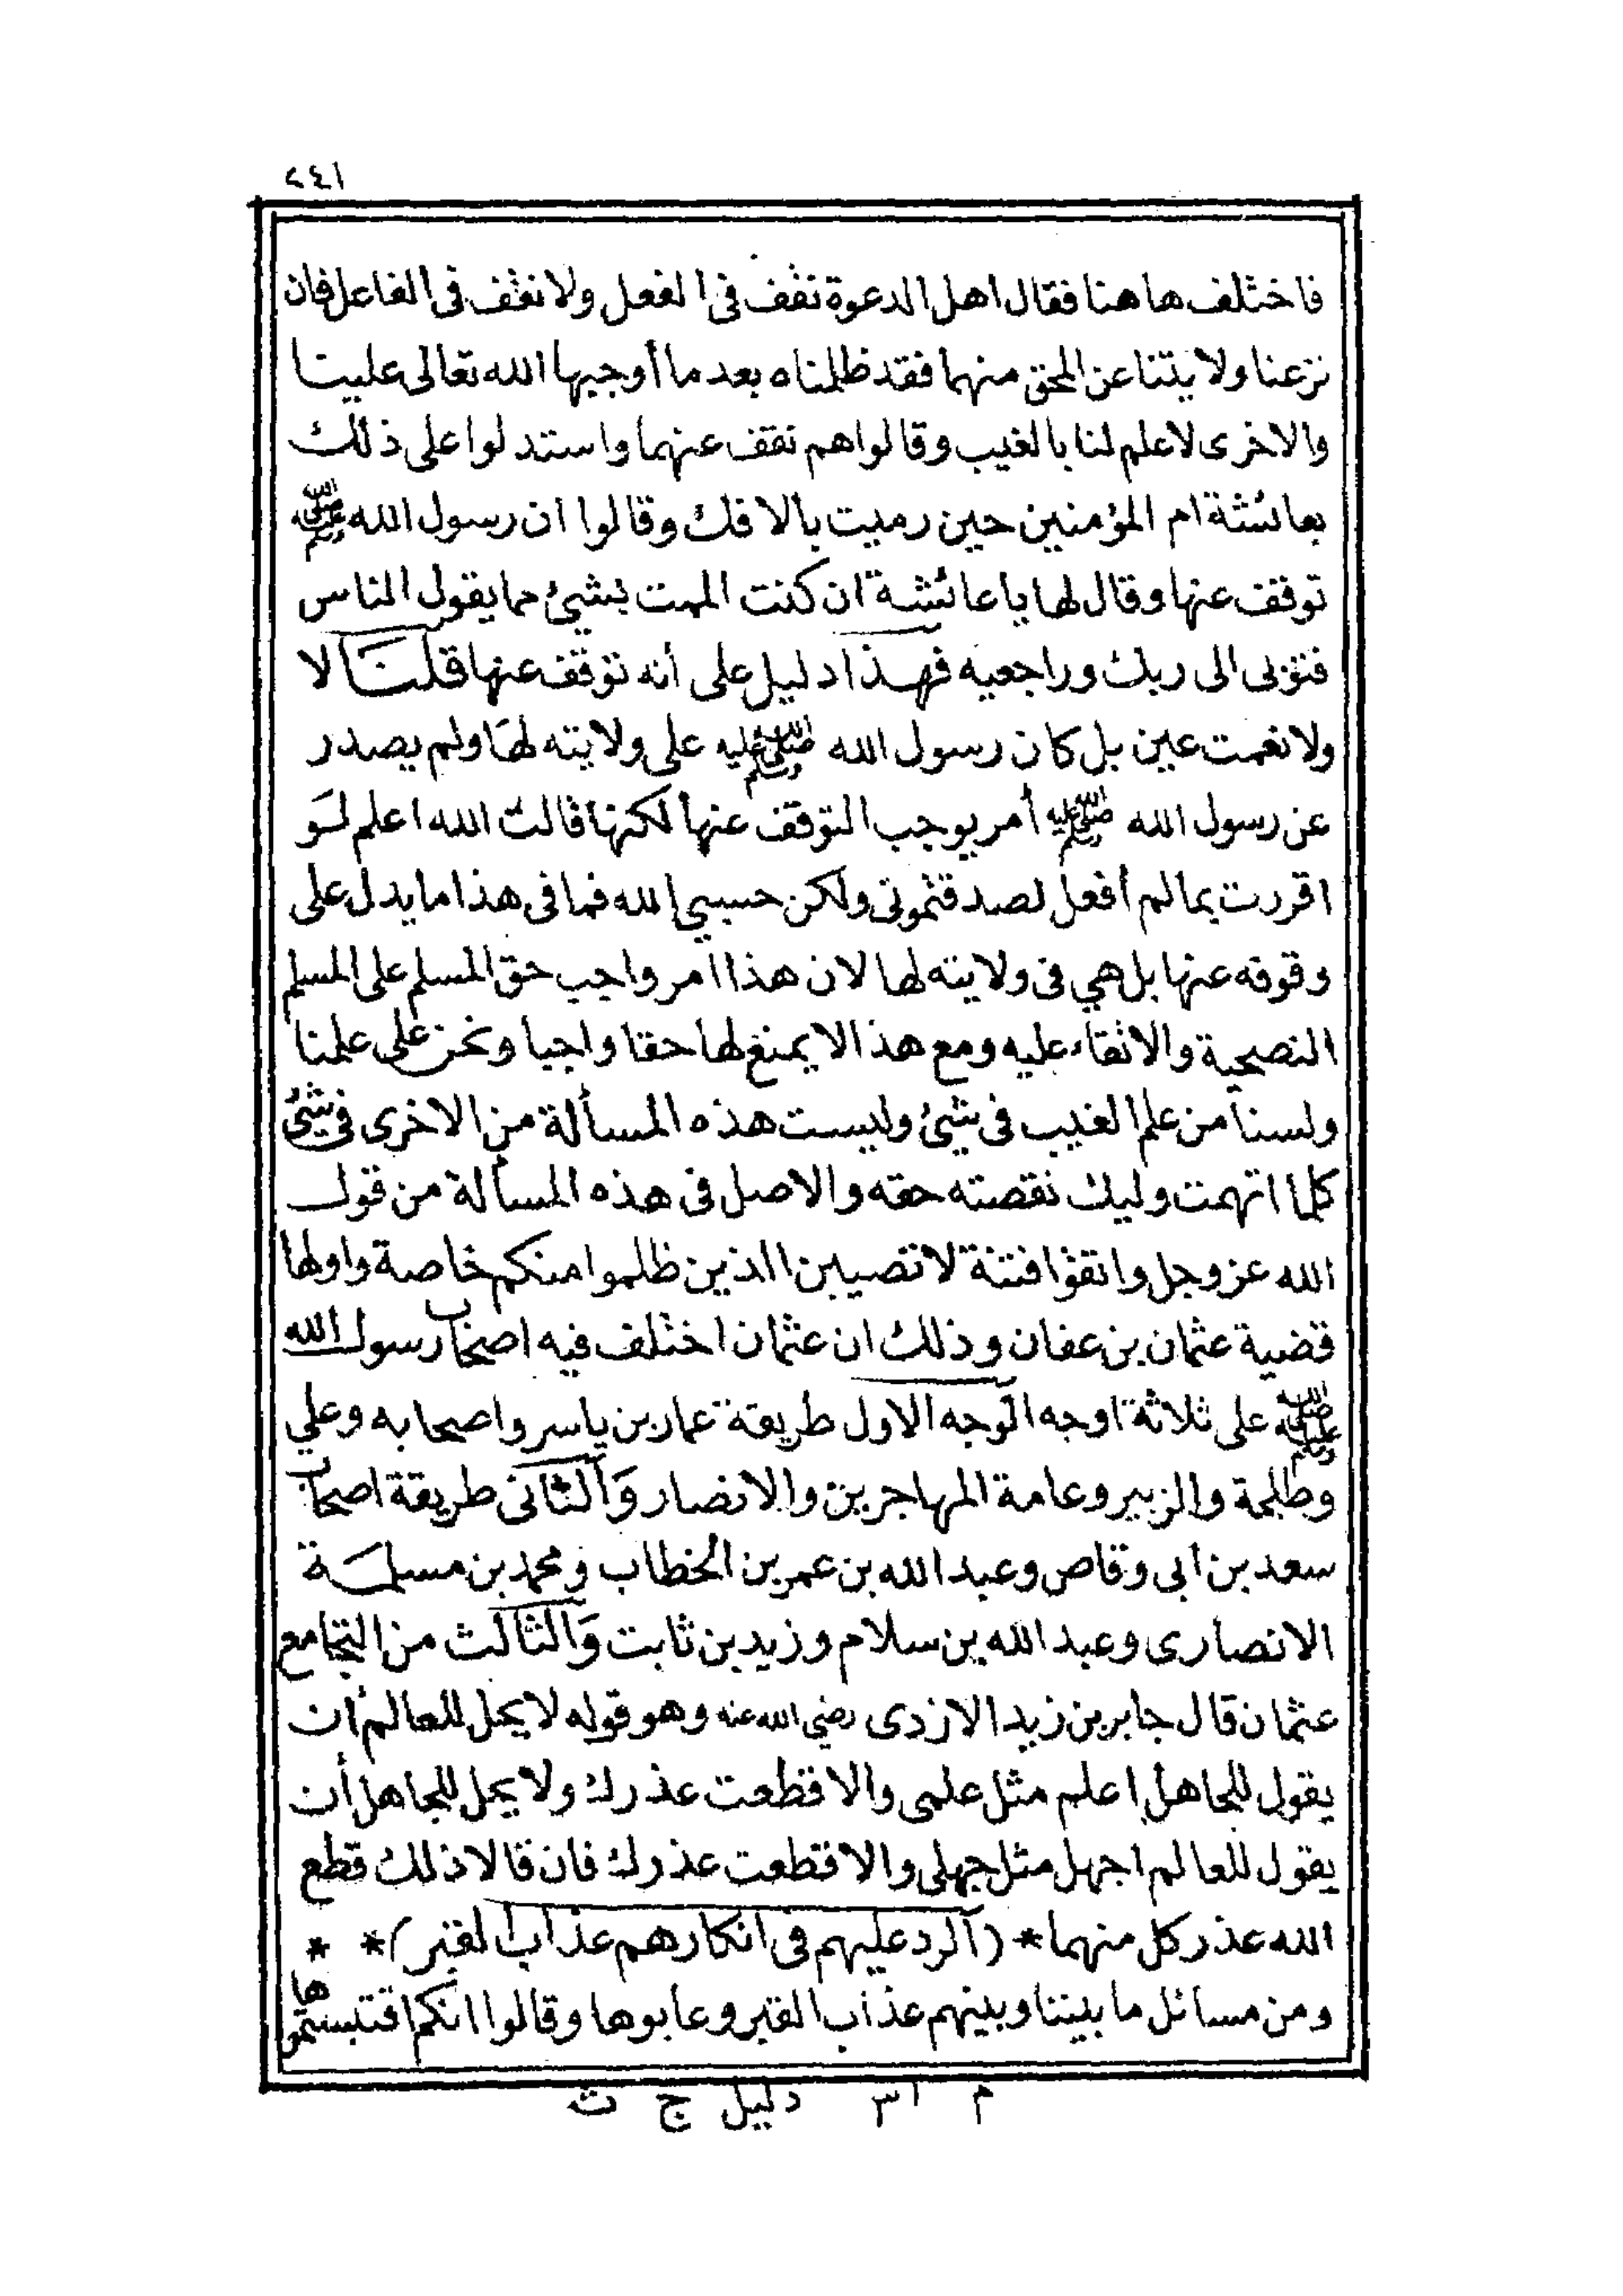 ٢٤١
فاختلف هاهنا فقال اهل الدعوة نقف فى الفعل ولا نقف فى الفاعل فان
نزعنا ولايتنا عن المحق منهما فقد ظلمناه بعد ما أوجبها الله تعالى علينا
والاخرى لا علم لنا بالغيب وقالوا هم نقف عنهما واستدلوا على ذلك
بعائشة ام المؤمنين حين رميت بالافك وقالوا ان رسول الله ﷺ
توقف عنها وقال لها يا عائشة ان كنت الممت بشئ مما يقول الناس
فتوبى الى ربك وراجعيه فهذا دليل على أنه توقف عنها قلنا لا
ولا نعمت عين بل كان رسول الله ﷺ على ولايته لها ولم يصدر
عن رسول الله ﷺ أمر يوجب التوقف عنها لكنها قالت الله اعلم لو
اقررت بما لم أفعل لصدقتمونى ولكن حسبي الله فما فى هذا ما يدل على
وقوفه عنها بل هي فى ولايته لها لان هذا امر واجب حق المسلم على المسلم
النصحية والاتقاء عليه ومع هذا لا يمنع لها حقا واجبا ونحن على علمنا
ولسنا من علم الغيب فى شئ وليست هذه المسألة من الاخرى فى شئ
كلما اتهمت وليك نقصته حقه والاصل فى هذه المسألة من قول
الله عز وجل واتقوا فتنة لا تصيبن الذين ظلموا منكم خاصة واولها
قضية عثمان بن عفان وذلك ان عثمان اختلف فيه اصحاب رسول الله
ﷺ على ثلاثة اوجه الوجه الاول طريقة عمار بن ياسر واصحابه وعلي
وطلحة والزبير وعامة المهاجرين والانصار والثانى طريقة اصحاب
سعد بن ابى وقاص وعبد الله بن عمر بن الخطاب ومحمد بن مسلمة
الانصارى وعبد الله بن سلام وزيد بن ثابت والثالث من التجا مع
عثمان قال جابر بن زيد الازدى رضي الله عنه وهو قوله لا يحل للعالم أن
يقول للجاهل اعلم مثل علمى والا قطعت عذرك ولا يحل للجاهل أن
يقول للعالم اجهل مثل جهلى والا قطعت عذرك فان قالا ذلك قطع
الله عذر كل منهما * (الرد عليهم فى انكارهم عذاب القبر) * *
ومن مسائل ما بيننا وبينهم عذاب القبر وعابوها وقالوا انكم اقتبستموها
م ٣١ دليل ج ث